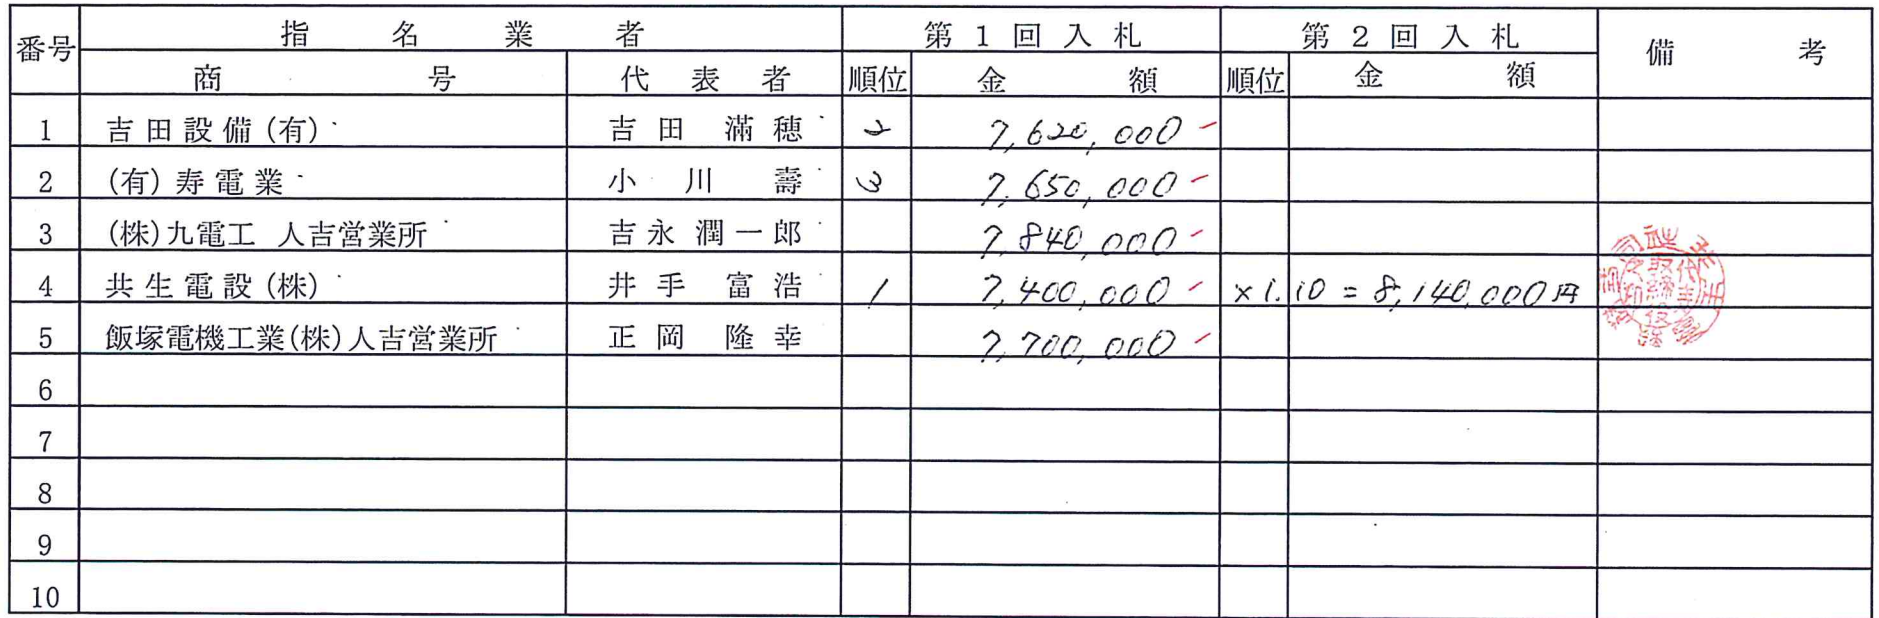 番号 指名業者 第1回入札 第2回入札 備考
商号 代表者 順位 金額 順位 金額
1 吉田設備(有) 吉田 滿穂 2 7,620,000
2 (有)寿電業 小川 壽 3 7,650,000
3 (株)九電工 人吉営業所 吉永潤一郎 7,840,000
4 共生電設(株) 井手 富浩 1 7,400,000 ×1.10=8,140,000円
5 飯塚電機工業(株)人吉営業所 正岡 隆幸 7,700,000
6
7
8
9
10